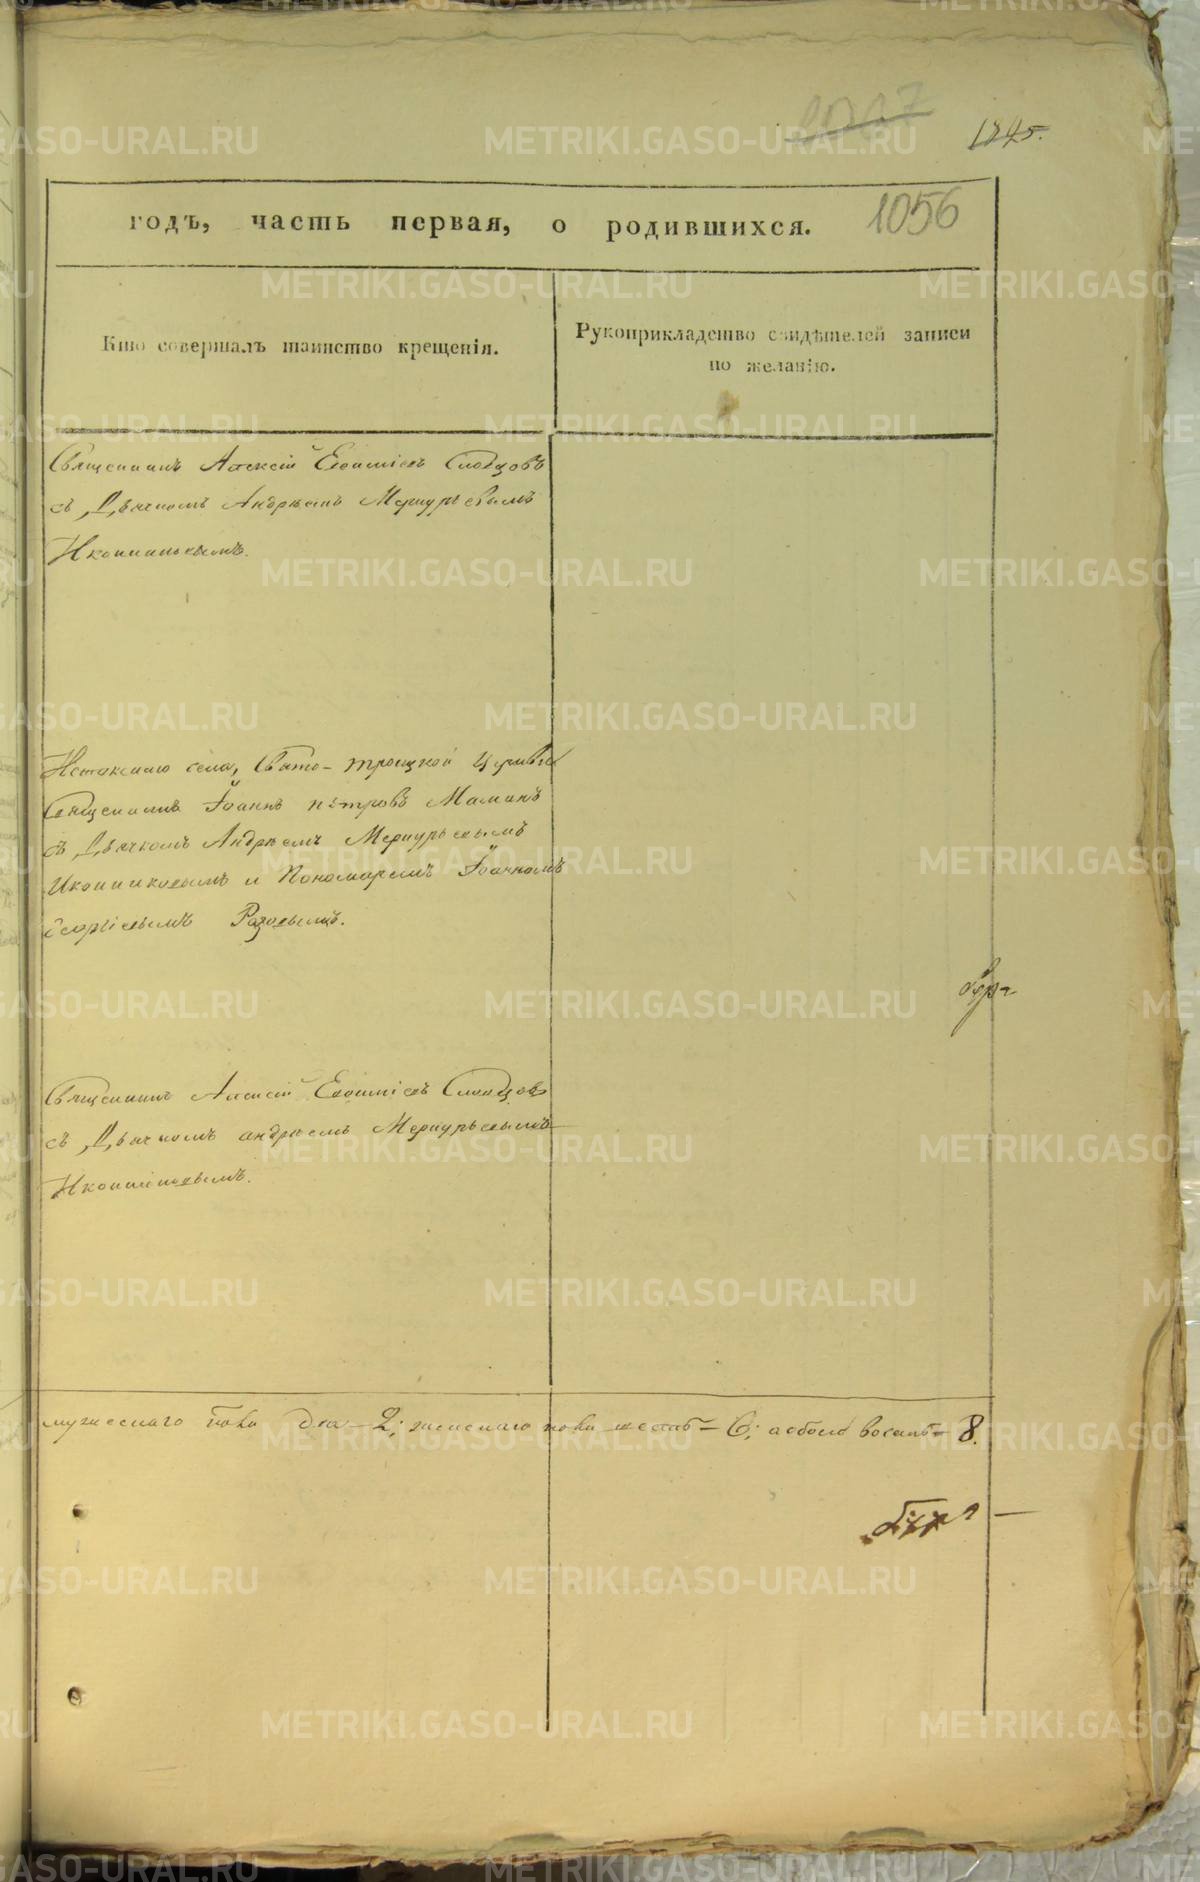 1845.
годъ, часть первая, о родившихся. 1056
Кто совершалъ таинство крещенія.
Рукоприкладство свидѣтелей записи
по желанію.
Священникъ Алексій Евѳиміевъ Словцовъ
съ Дьячкомъ Андрѣемъ Меркурьевымъ
Иконниковымъ.
Истокскаго села, Свято-троицкой Церкви
Священникъ Іоаннъ петровъ Маминъ
съ Дьячкомъ Андрѣемъ Меркурьевымъ
Иконниковымъ и Пономаремъ Іоанномъ
Георгіевымъ
Священникъ Алексій Евѳиміевъ Словцовъ
съ Дьячкомъ андрѣемъ Меркурьевымъ
Иконниковымъ.
мужескаго пола два - 2; женскаго пола шесть - 6; а обоего восемь - 8.
METRIKI.GASO-URAL.RU